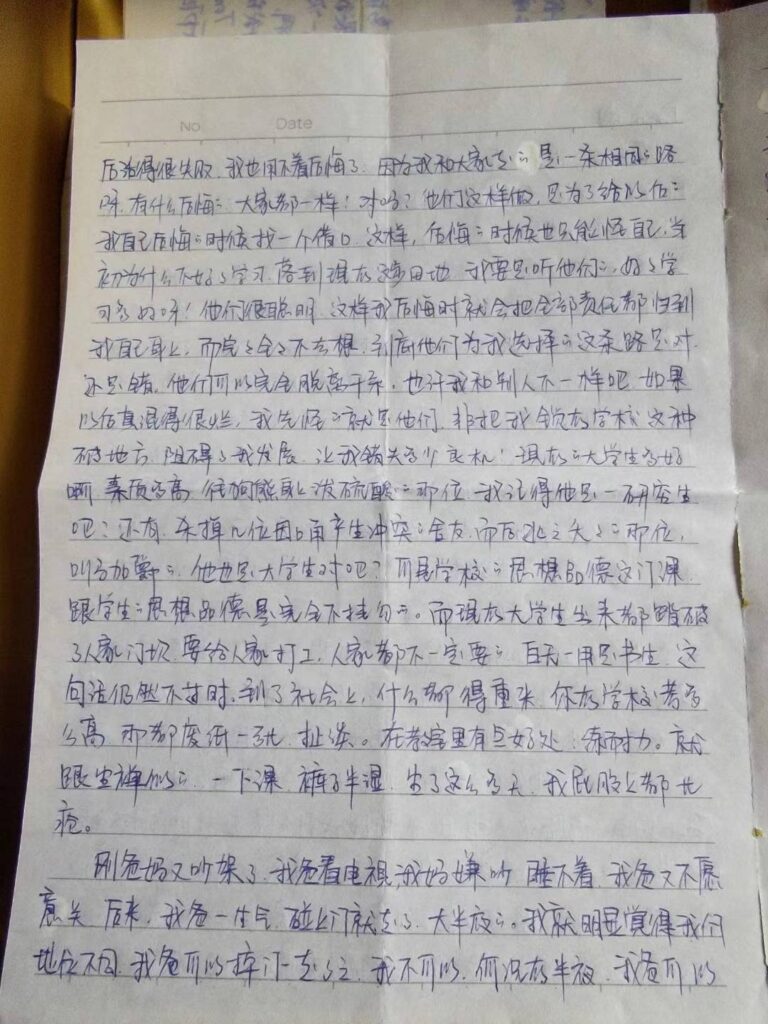 No Date
后活得很失败,我也用不着后悔了.因为我和大家走的是一条相同的路
呀.有什么后悔的.大家都一样!对吗?他们这样做,是为了给以后的
我自己后悔的时候找一个借口.这样,后悔的时候也只能怪自己,当
初为什么不好好学习.落到现在这步田地.我要是听他们的,好好学
习多好呀!他们很聪明.这样我后悔时就会把全部责任都归到
我自己身上,而完完全全不去想,到底他们为我选择的这条路是对
还是错.他们可以完全脱离干系,也许我和别人不一样吧.如果
以后真混得很烂,我先怪的就是他们,非把我锁在学校这种
破地方.阻碍了我发展.让我错失多少良机!现在的大学生多好
啊.素质多高.往狗熊身上泼硫酸的那位.我记得他是一研究生
吧?还有.杀掉几位因口角产生冲突的舍友.而后逃之夭夭的那位,
叫马加爵的.他也是大学生对吧?可是学校的思想品德这门课
跟学生的思想品德是完全不挂勾的。而现在大学生出来都踏破
了人家门坎.要给人家打工,人家都不一定要的.百无一用是书生.这
句话仍然不过时.到了社会上,什么都得重来.你在学校考多
么高.那都废纸一张.扯淡。在教室里有点好处:练耐力。就
跟坐禅似的.一下课.裤子半湿.坐了这么多天.我屁股上都长
疮。
刚爸妈又吵架了.我爸看电视,我妈嫌吵.睡不着.我爸又不愿
意关.后来,我爸一生气.碰上门就走了.大半夜的。我就明显觉得我们
地位不同.我爸可以摔门一走了之.我不可以.何况在半夜.我爸可以